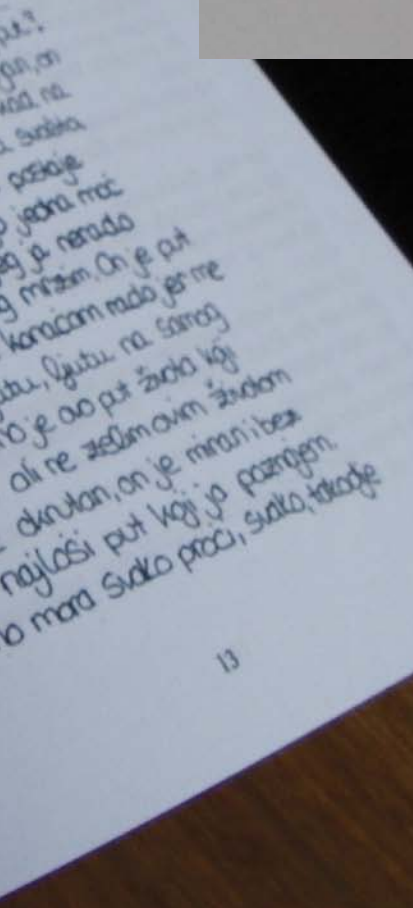 put?
on
kad na
svašta
postaje
jedna moć
ja nerado
mrzim. On je put
koracam rado jer me
ljutu, ljutu na samog
je ovo put života koji
ali ne zelim ovim životom
okrutan, on je miran i bez
najloši put koji ja poznajem.
mora svako proći, svako, takodje
13